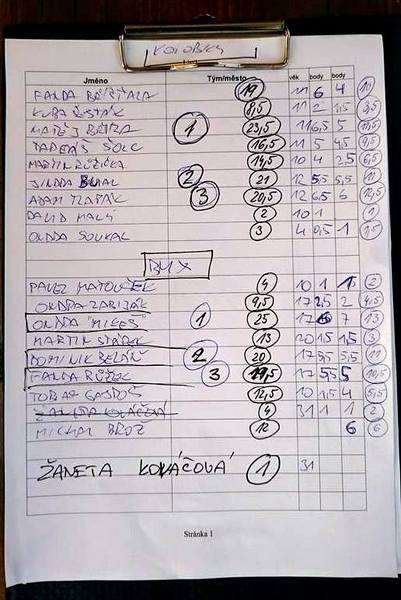 KOLOBĚH
Jméno Tým/město věk body body
FANDA 19 11 6 4 10
KUBA ŠESTÁK 8,5 11 2 1,5 3,5
MATĚJ 1 23,5 11 6,5 5
TADEÁŠ ŠOLC 16,5 11 5 4,5 9,5
MARTIN RŮŽIČKA 14,5 10 4 2,5 6,5
JINDRA 2 21 12 5,5 5,5 11
ADAM 3 20,5 12 6,5 6 12,5
DAVID MALÝ 2 10 1 1
ONDRA SOUKAL 3 4 0,5 1 1,5
BMX
PAVEL MATOUŠEK 4 10 1 1 2
ONDRA ZABIJÁK 9,5 17 2,5 2 4,5
ONDRA "MIKEŠ" 1 25 17 6 7 13
MARTIN 13 20 1,5 1,5 3
DOMINIK BELÁN 2 20 17 5,5 11
FANDA RŮŽEK 3 19,5 17 5,5 5 10,5
TOBIAS 12,5 10 1,5 4
ŽANETA KOVÁČOVÁ 4 31 1 1 2
MICHAL BROŽ 12 6 6
ŽANETA KOVÁČOVÁ 1 31
Stránka 1